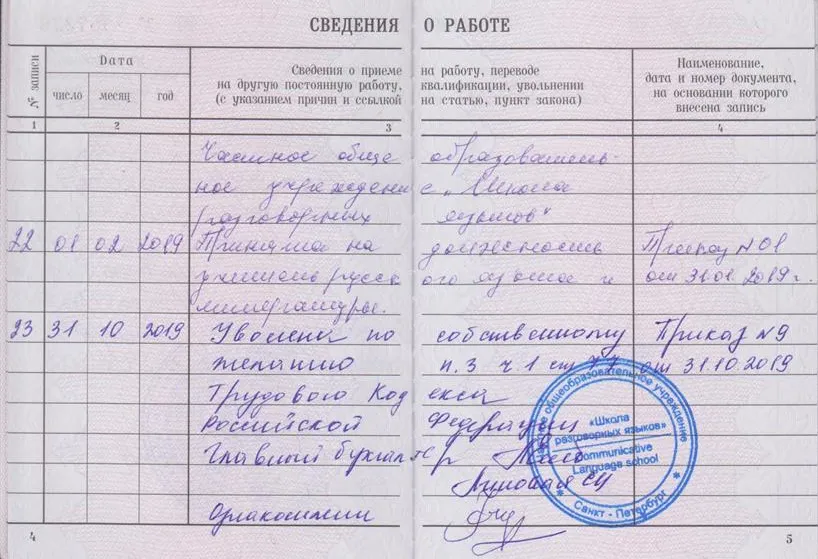 СВЕДЕНИЯ О РАБОТЕ
№ записи
Дата
число месяц год
Сведения о приеме на работу, переводе
на другую постоянную работу, квалификации, увольнении
(с указанием причин и ссылкой на статью, пункт закона)
Наименование,
дата и номер документа,
на основании которого
внесена запись
1 2 3 4
Частное общеобразователь-
ное учреждение "Школа
разговорных языков"
22 01 02 2019 Принята на должность Приказ N01
учителя русского языка и от 31.01.2019 г.
литературы.
23 31 10 2019 Уволена по собственному Приказ N9
желанию п. 3 ч. 1 ст 77 от 31.10.2019
Трудового Кодекса
Российской Федерации
Главный бухгалтер
Ознакомлена
общеобразовательное учреждение
«Школа
разговорных языков»
Communicative
Language school
* Санкт - Петербург *
4 5